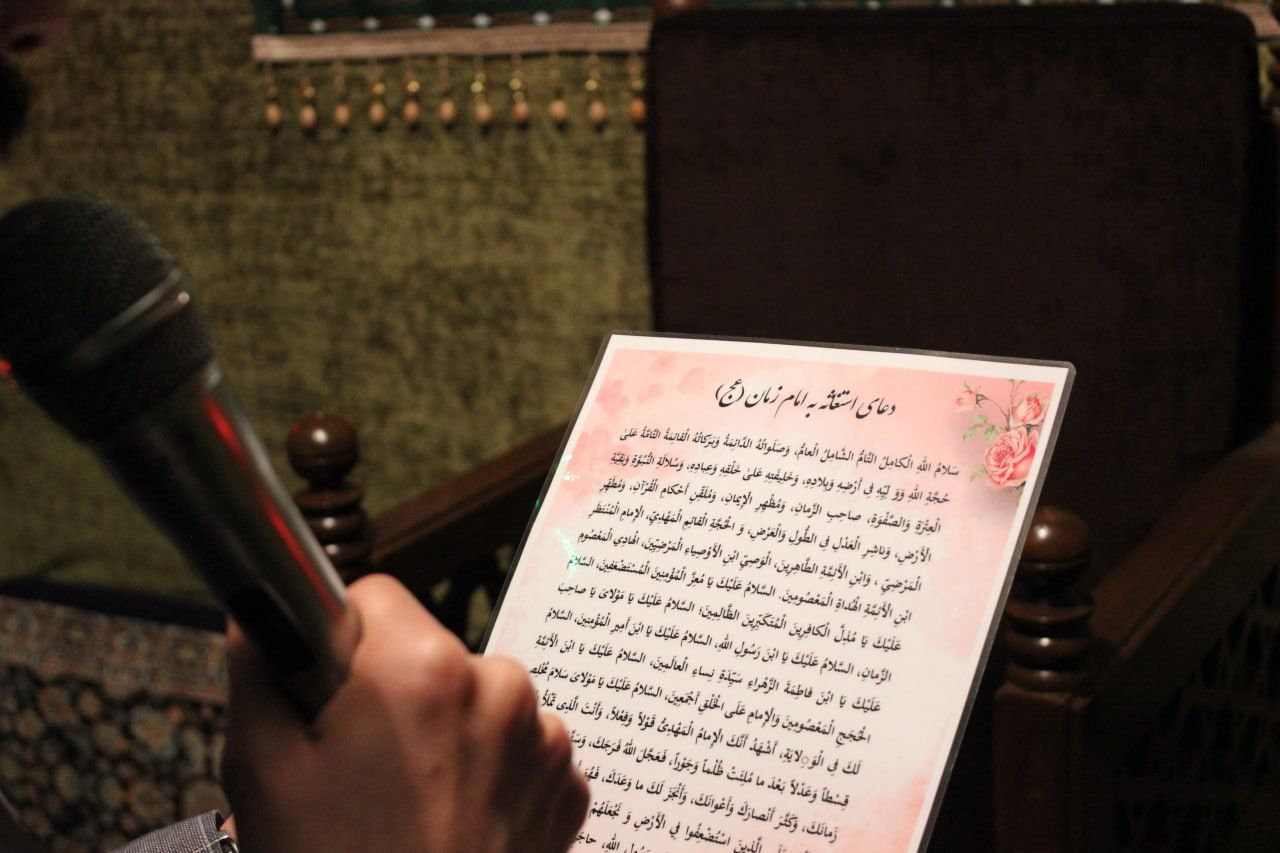 دعای استغاثه به امام زمان (عج)
سَلامُ اللهِ الْكامِلُ التّامُّ الشّامِلُ الْعامُّ، وَصَلَواتُهُ الدّائِمَةُ وَبَرَكاتُهُ الْقائِمَةُ التّامَّةُ عَلىٰ
حُجَّةِ اللهِ وَوَ لِيِّهِ فِي أَرْضِهِ وَبِلادِهِ، وَخَليفَتِهِ عَلىٰ خَلْقِهِ وَعِبادِهِ، وَسُلالَةِ النُّبُوَّةِ وَبَقِيَّةِ
الْعِتْرَةِ وَالصَّفْوَةِ، صاحِبِ الزَّمانِ، وَمُظْهِرِ الْإيمانِ، وَمُلَقِّنِ أَحْكامِ الْقُرْآنِ، وَمُطَهِّرِ
الْأَرْضِ، وَناشِرِ الْعَدْلِ فِي الطُّولِ وَالْعَرْضِ، وَ الْحُجَّةِ الْقائِمِ الْمَهْدِيِّ، الْإِمامِ الْمُنْتَظَرِ
الْمَرْضِيِّ ، وَابْنِ الْأَئِمَّةِ الطّاهِرِينَ، الْوَصِيِّ ابْنِ الْأَوْصِياءِ الْمَرْضِيِّينَ، الْهادِي الْمَعْصُومِ
ابْنِ الْأَئِمَّةِ الْهُداةِ الْمَعْصُومِينَ. السَّلامُ عَلَيْكَ يَا مُعِزَّ الْمُؤْمِنِينَ الْمُسْتَضْعَفِينَ، السَّلامُ
عَلَيْكَ يَا مُذِلَّ الْكافِرِينَ الْمُتَكَبِّرِينَ الظّالِمِينَ؛ السَّلامُ عَلَيْكَ يَا مَوْلايَ يَا صاحِبَ
الزَّمانِ، السَّلامُ عَلَيْكَ يَا ابْنَ رَسُولِ اللهِ، السَّلامُ عَلَيْكَ يَا ابْنَ أَمِيرِ الْمُؤْمِنِينَ، السَّلامُ
عَلَيْكَ يَا ابْنَ فاطِمَةَ الزَّهْراءِ سَيِّدَةِ نِساءِ الْعالَمِينَ، السَّلامُ عَلَيْكَ يَا ابْنَ الْأَئِمَّةِ
الْحُجَجِ الْمَعْصُومِينَ وَالْإِمامِ عَلَى الْخَلْقِ أَجْمَعِينَ، السَّلامُ عَلَيْكَ يَا مَوْلايَ سَلامَ مُخْلِصٍ
لَكَ فِي الْوَلايَةِ، أَشْهَدُ أَنَّكَ الْإِمامُ الْمَهْدِيُّ قَوْلاً وَفِعْلاً، وَأَنْتَ الَّذِي تَمْلَأُ
قِسْطاً وَعَدْلاً بَعْدَ ما مُلِئَتْ ظُلْماً وَجَوْراً، فَعَجَّلَ اللهُ فَرَجَكَ،
زَمانَكَ، وَكَثَّرَ أَنْصارَكَ وَأَعْوانَكَ، وَأَنْجَزَ لَكَ ما وَعَدَكَ، فَهُوَ
الَّذِينَ اسْتُضْعِفُوا فِي الْأَرْضِ وَ نَجْعَلَهُمْ
رَسُولِ اللهِ،